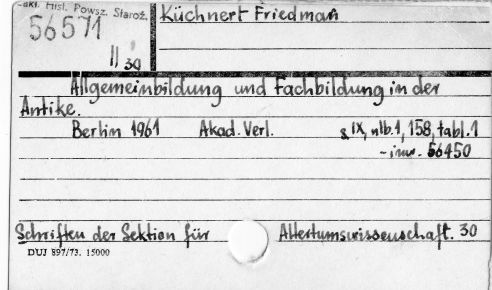 Zakł. Hist. Powsz. Staroż.
Küchnert Friedman
56571
II 30
Allgemeinbildung und Fachbildung in der
Antike.
Berlin 1961 Akad. Verl. s. IX, nlb. 1, 158, tabl. 1
- inw. 56450
Schriften der Sektion für Altertumswissenschaft. 30
DUJ 897/73. 15000